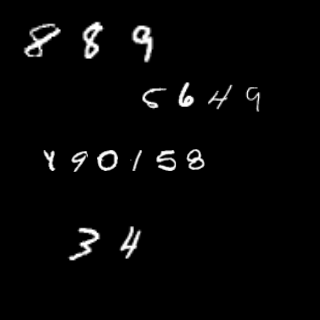 889
5649
490158
34